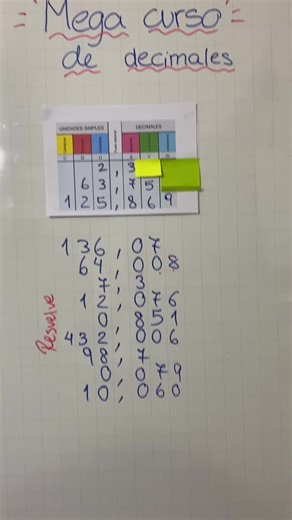 = Mega curso =
de decimales
UNIDADES SIMPLES DECIMALES
C D U
2,3
63,75
125,869
136,07
64,008
7,3
12,076
0,851
432,006
98,7
0,079
10,060
Resuelve